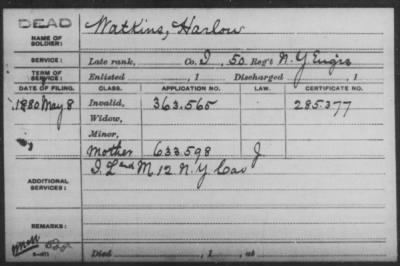 DEAD
NAME OF SOLDIER: Watkins, Harlow
SERVICE: Late rank, Co. I, 50 Reg't N.Y. Engrs
TERM OF SERVICE: Enlisted , 1 Discharged , 1
DATE OF FILING. CLASS. APPLICATION NO. LAW. CERTIFICATE NO.
1880 May 8 Invalid, 363.565 285.377
Widow,
Minor,
Mother 633.598 J.
ADDITIONAL SERVICES: I. L and M 12 N.Y Cav
REMARKS:
Died , 1 , at